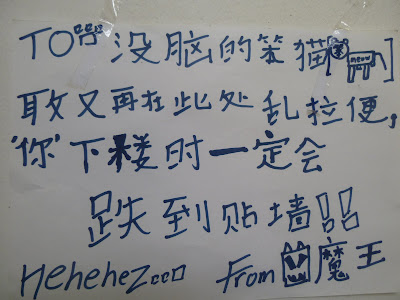 TO 没脑的笨猫[meow]
敢又再在此处乱拉便,
'你'下楼时一定会
跌到贴墙!!
HeheheZ... From 魔王